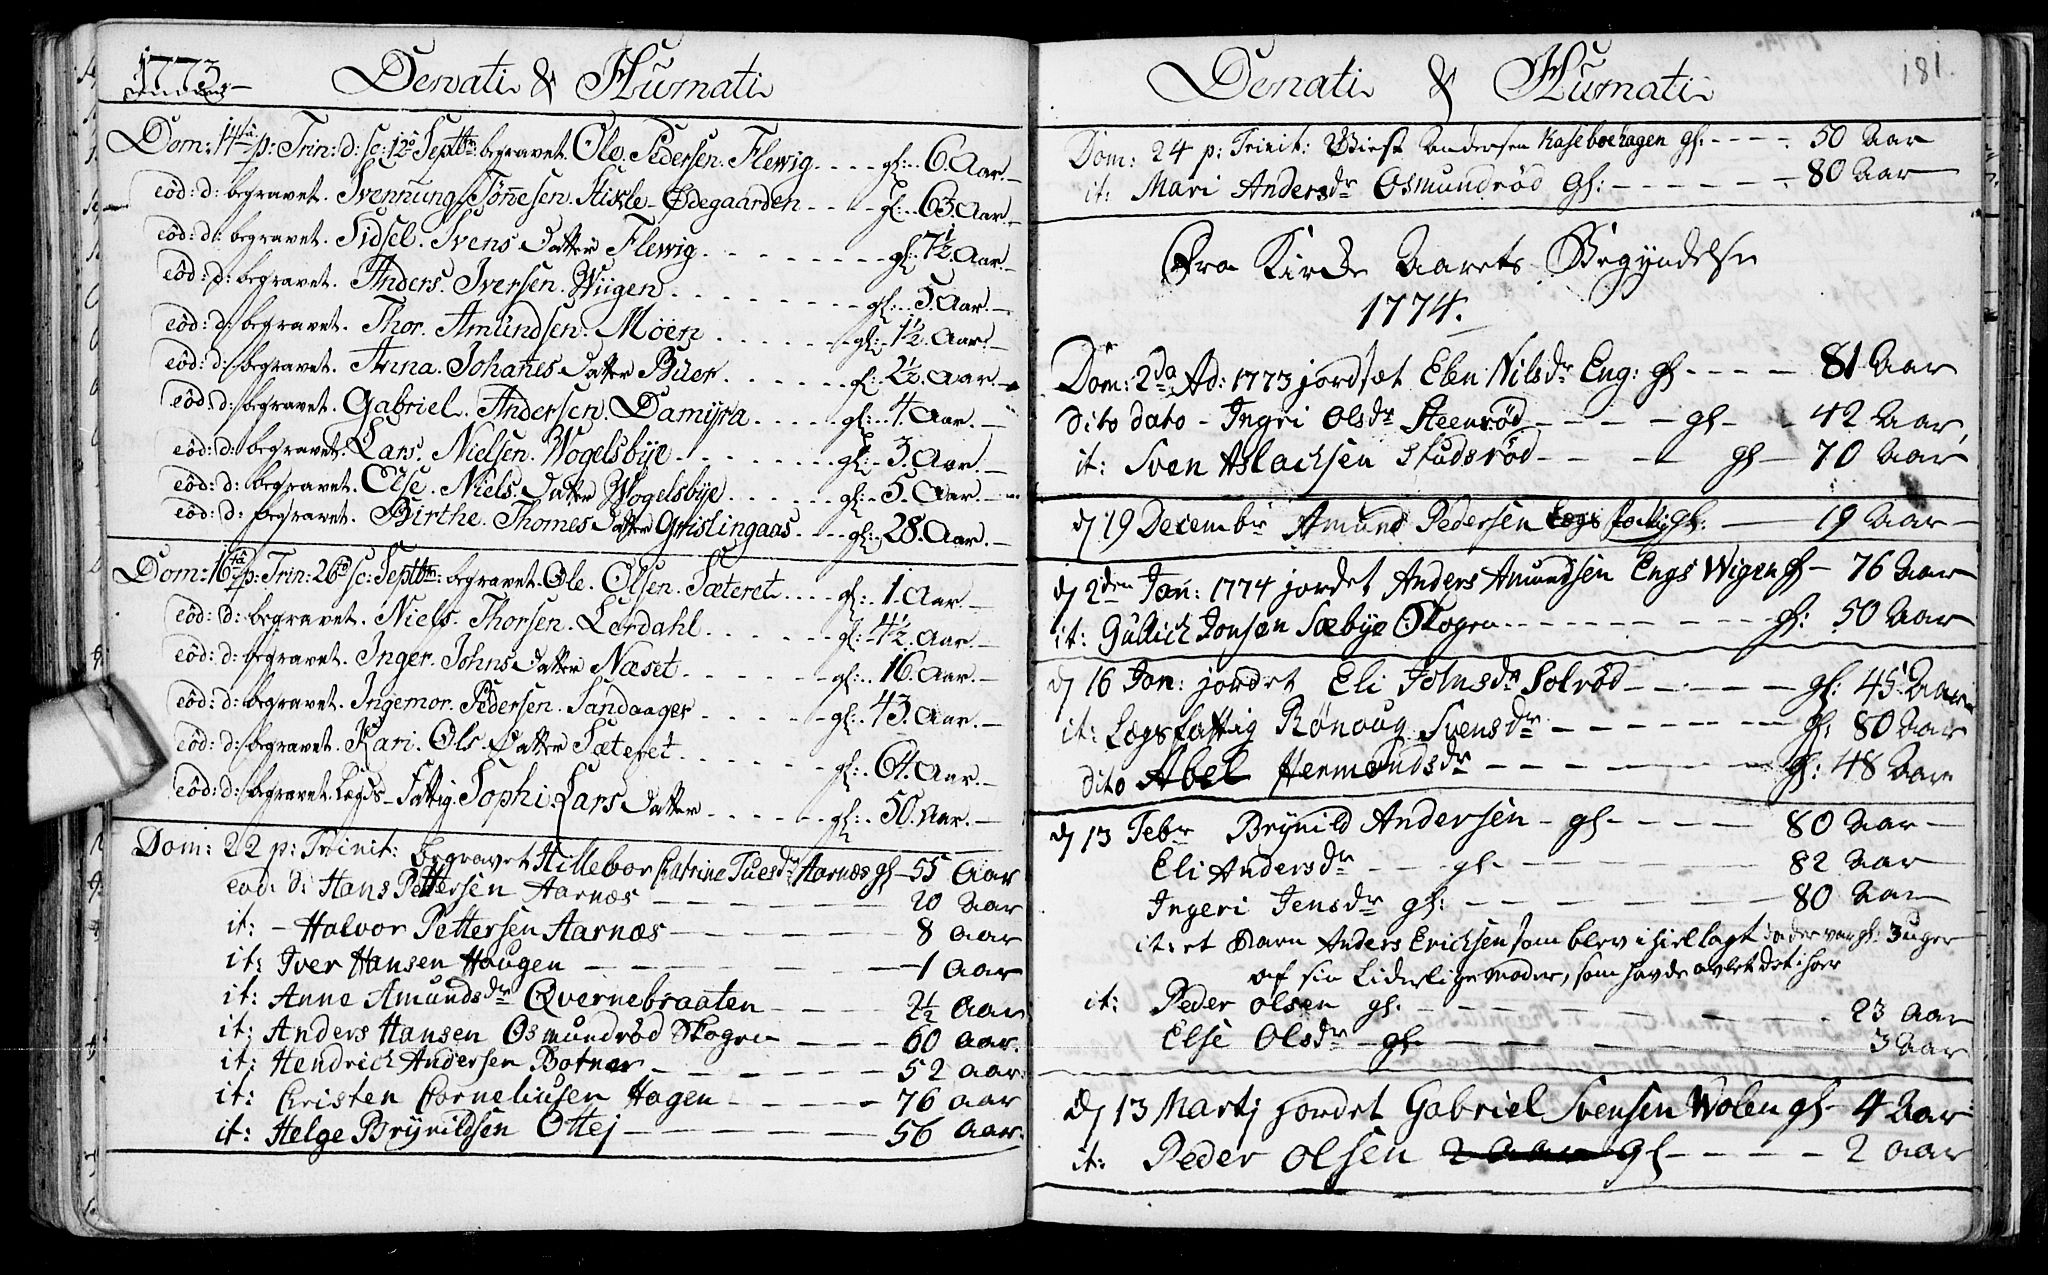 1773
Denati & Humati
Dom: 14da p: Trin: d: sc: 12 Septbr: begravet. Ole. Pedersen. Flewig.... gl:. 6. Aar.
eód: d: begravet. Svennung Tønesen. Stixle-Ødegaarden.... gl:. 63. Aar.
eód: d: begravet. Sidsel. Svens Datter Flewig.... gl:. 7½ Aar.
eód: d: begravet. Anders. Iversen. Wiigen.... gl:. 5. Aar.
eód: d: begravet. Thor. Amundsen. Moen.... gl:. 1½. Aar.
eód: d: begravet. Anna. Johanes Datter Buer.... gl:. 2½. Aar.
eód: d: begravet. Gabriel. Andersen. Damyra.... gl:. 4. Aar.
eód: d: begravet. Lars. Nielsen. Wogelsbye.... gl:. 3. Aar.
eód: d: begravet. Else. Niels. Datter Wogelsbye.... gl:. 5. Aar.
eód: d: begravet. Birthe. Thomes Datter Grislingaas.... gl:. 28. Aar.
Dom: 16ta p: Trin: 26 sc: Septbr: begravet. Ole. Olsen. Sæteret.... gl:. 1. Aar.
eód: d: begravet. Niels. Thorsen. Lerdahl.... gl:. 4½. Aar.
eód: d: begravet. Inger. Johns Datter Næset.... gl:. 16. Aar.
eód: d: begravet. Ingemor. Pedersen. Sandaager.... gl:. 43. Aar.
eód: d: begravet. Kari. Ols. Datter Sæteret.... gl:. 64. Aar.
eód: d: begravet. Lægds-Fattig. Sophi. Lars Datter.... gl:. 50. Aar.
Dom: 22 p: Trinit: begravet Hillebor Catrine Tuesdr Aarnæs gl - 55 Aar
eod: d: Hans Pettersen Aarnæs - 20 Aar
it: - Halvor Pettersen Aarnæs - 8 Aar
it: Iver Hansen Haugen - 1 Aar
it: Anne Amundsdr Qvernebraaten - 2½ Aar
it: Anders Hansen Osmundrød Skogen - 60 Aar.
it: Hendrich Andersen Botner - 52 Aar:
it: Christen Corneliusen Hagen - 76 Aar
it: Helge Brynildsen Ottej - 56 Aar:
Denati & Humati
181.
Dom: 24 p: Trinit: Andersen Kaseboehagen gl: - 50 Aar
it: Mari Andersdr Osmundrød gl: - 80 Aar
Fra Kirke Aarets Begyndelse
1774.
Dom: 2da Ad: 1773 jordset Elen Nilsdr Eng: gl - 81 Aar
dito dato - Ingri Olsdr Steenrød - gl - 42 Aar
it: Sven Aslachsen Studsrød - gl - 70 Aar
d 19 Decembr Amund Pedersen Lægsfattig gl: - 19 Aar
d 2den Jan: 1774 jordet Anders Amundsen Engs Wigen gl - 76 Aar
it: Gullich Jonsen Sæbye Skogen - gl: 50 Aar
d 16 Jan: jordet Eli Johnsdr Solrød - gl: 45 Aar
it: Lægsfattig Rønoug Svensdr - gl: 80 Aar
dito Abel Hermondsdr - gl: 48 Aar
d 13 Febr Brynild Andersen - gl - 80 Aar
Eli Andersdr - gl - 82 Aar
Ingeri Jensdr gl: - 80 Aar
it: et Barn Anders Erichsen som blev ihiellagt da der var gl: 3 uger
af sin Liderlige Moder, som havde avlet det i hoer
it: Peder Olsen gl: - 23 Aar
Else Olsdr - gl: - 3 Aar
d 13 Martj Jordet Gabriel Svensen Wolen gl - 4 Aar
it: Peder Olsen 2 aar gl - 2 Aar